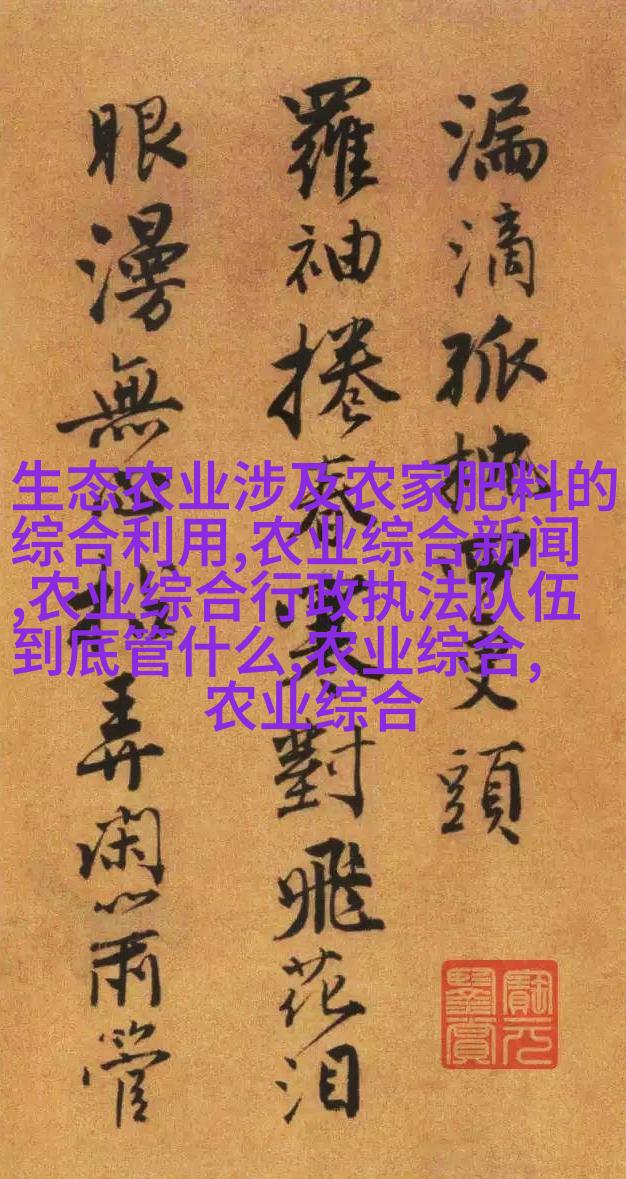 漏滴孤頭
羅袖捲春寒對飛花泪
眼漫無弄闲心管
生态农业涉及农家肥料的
综合利用,农业综合新闻
,农业综合行政执法队伍
到底管什么,农业综合,
农业综合